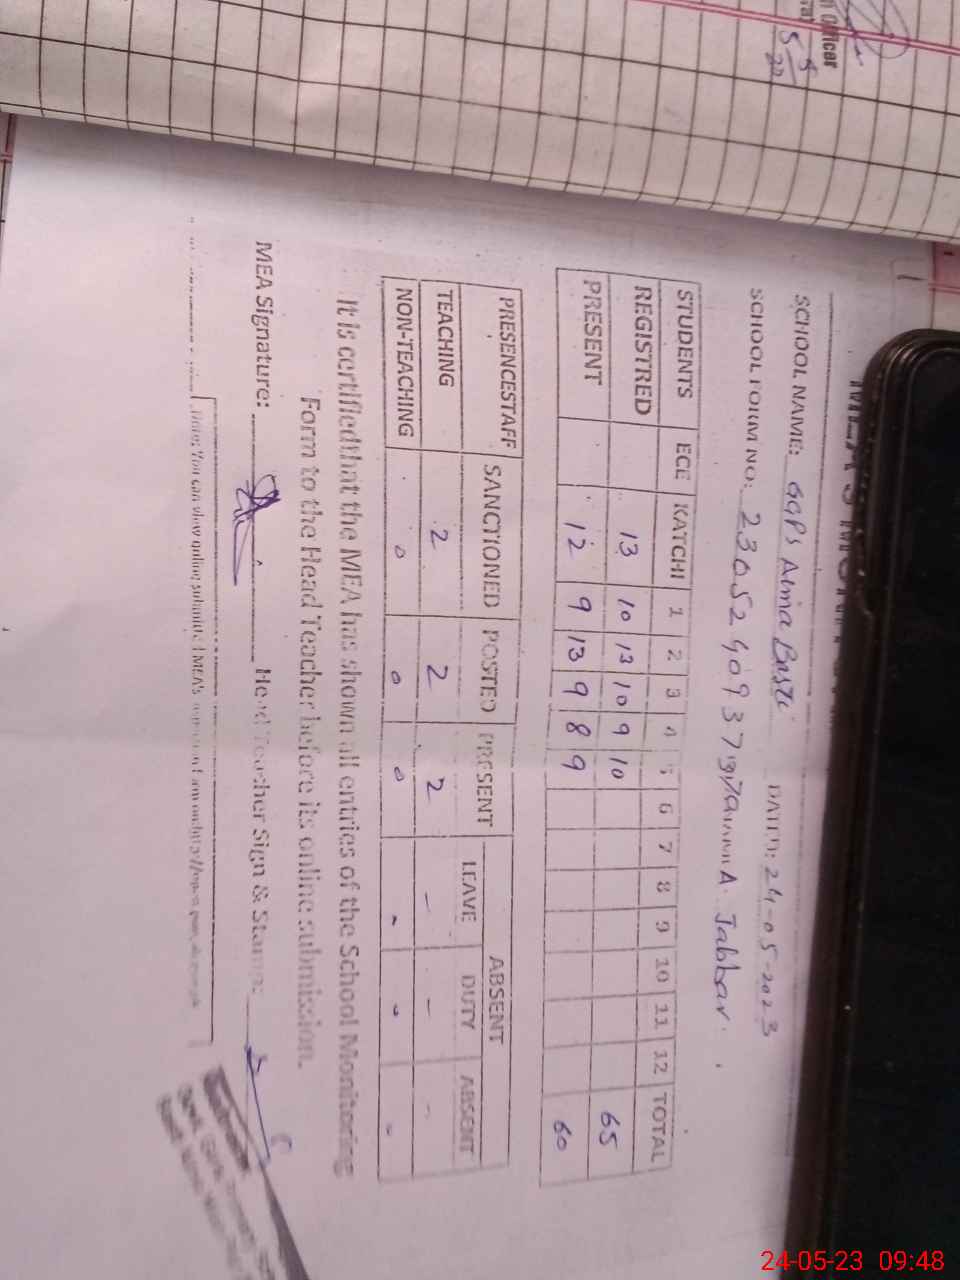 Officer
5
SCHOOL NAME: GGPS Arnia Basti DATED: 24-05-2023
SCHOOL FORM NO: A. Jabbar.
STUDENTS ECE KATCHI 1 2 3 4 5 6 7 8 9 10 11 12 TOTAL
REGISTRED 13 10 13 10 9 10 65
PRESENT 12 9 13 9 8 9 60
PRESENCESTAFF SANCTIONED POSTED PRESENT ABSENT
LEAVE DUTY ABSENT
TEACHING 2 2 2 - - -
NON-TEACHING 0 0 0 - - -
It is certifiedthat the MEA has shown all entries of the School Monitoring
Form to the Head Teacher before its online submission.
MEA Signature: Head Teacher Sign & Stamp:
Note: You can view online submitted MEA's
24-05-23 09:48